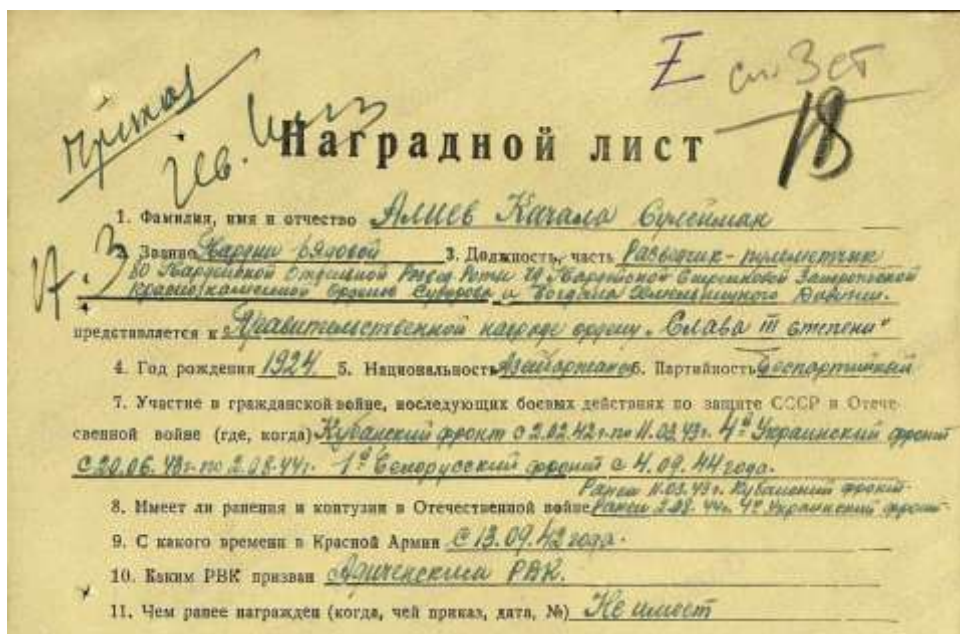 приказ
I сл. 3 ст
18
Наградной лист
1. Фамилия, имя и отчество Алиев Качало Сулейман
2. Звание Гвардии рядовой 3. Должность, часть Разведчик-пулеметчик
80 Гвардейской Отдельной Развед Роты Гвардейской Стрелковой Запорожской
Краснознаменной Ордена Суворова и Богдана Хмельницкого Дивизии.
представляется к Правительственной награде ордену „Слава III степени"
4. Год рождения 1924. 5. Национальность Азербайджанец 6. Партийность Беспартийный
7. Участие в гражданской войне, последующих боевых действиях по защите СССР и Отече-
ственной войне (где, когда) Кубанский фронт с 2.02.42г. по 11.03.43г. 4й Украинский фронт
с 20.06.43г. по 2.08.44г. 1й Белорусский фронт с 4.09.44 года.
Ранен 11.03.43г. Кубанский фронт
8. Имеет ли ранения и контузии в Отечественной войне Ранен 2.08.44г. 4й Украинский фронт
9. С какого времени в Красной Армии С 13.09.42 года.
10. Каким РВК призван РВК.
11. Чем ранее награжден (когда, чей приказ, дата, №) Не имеет